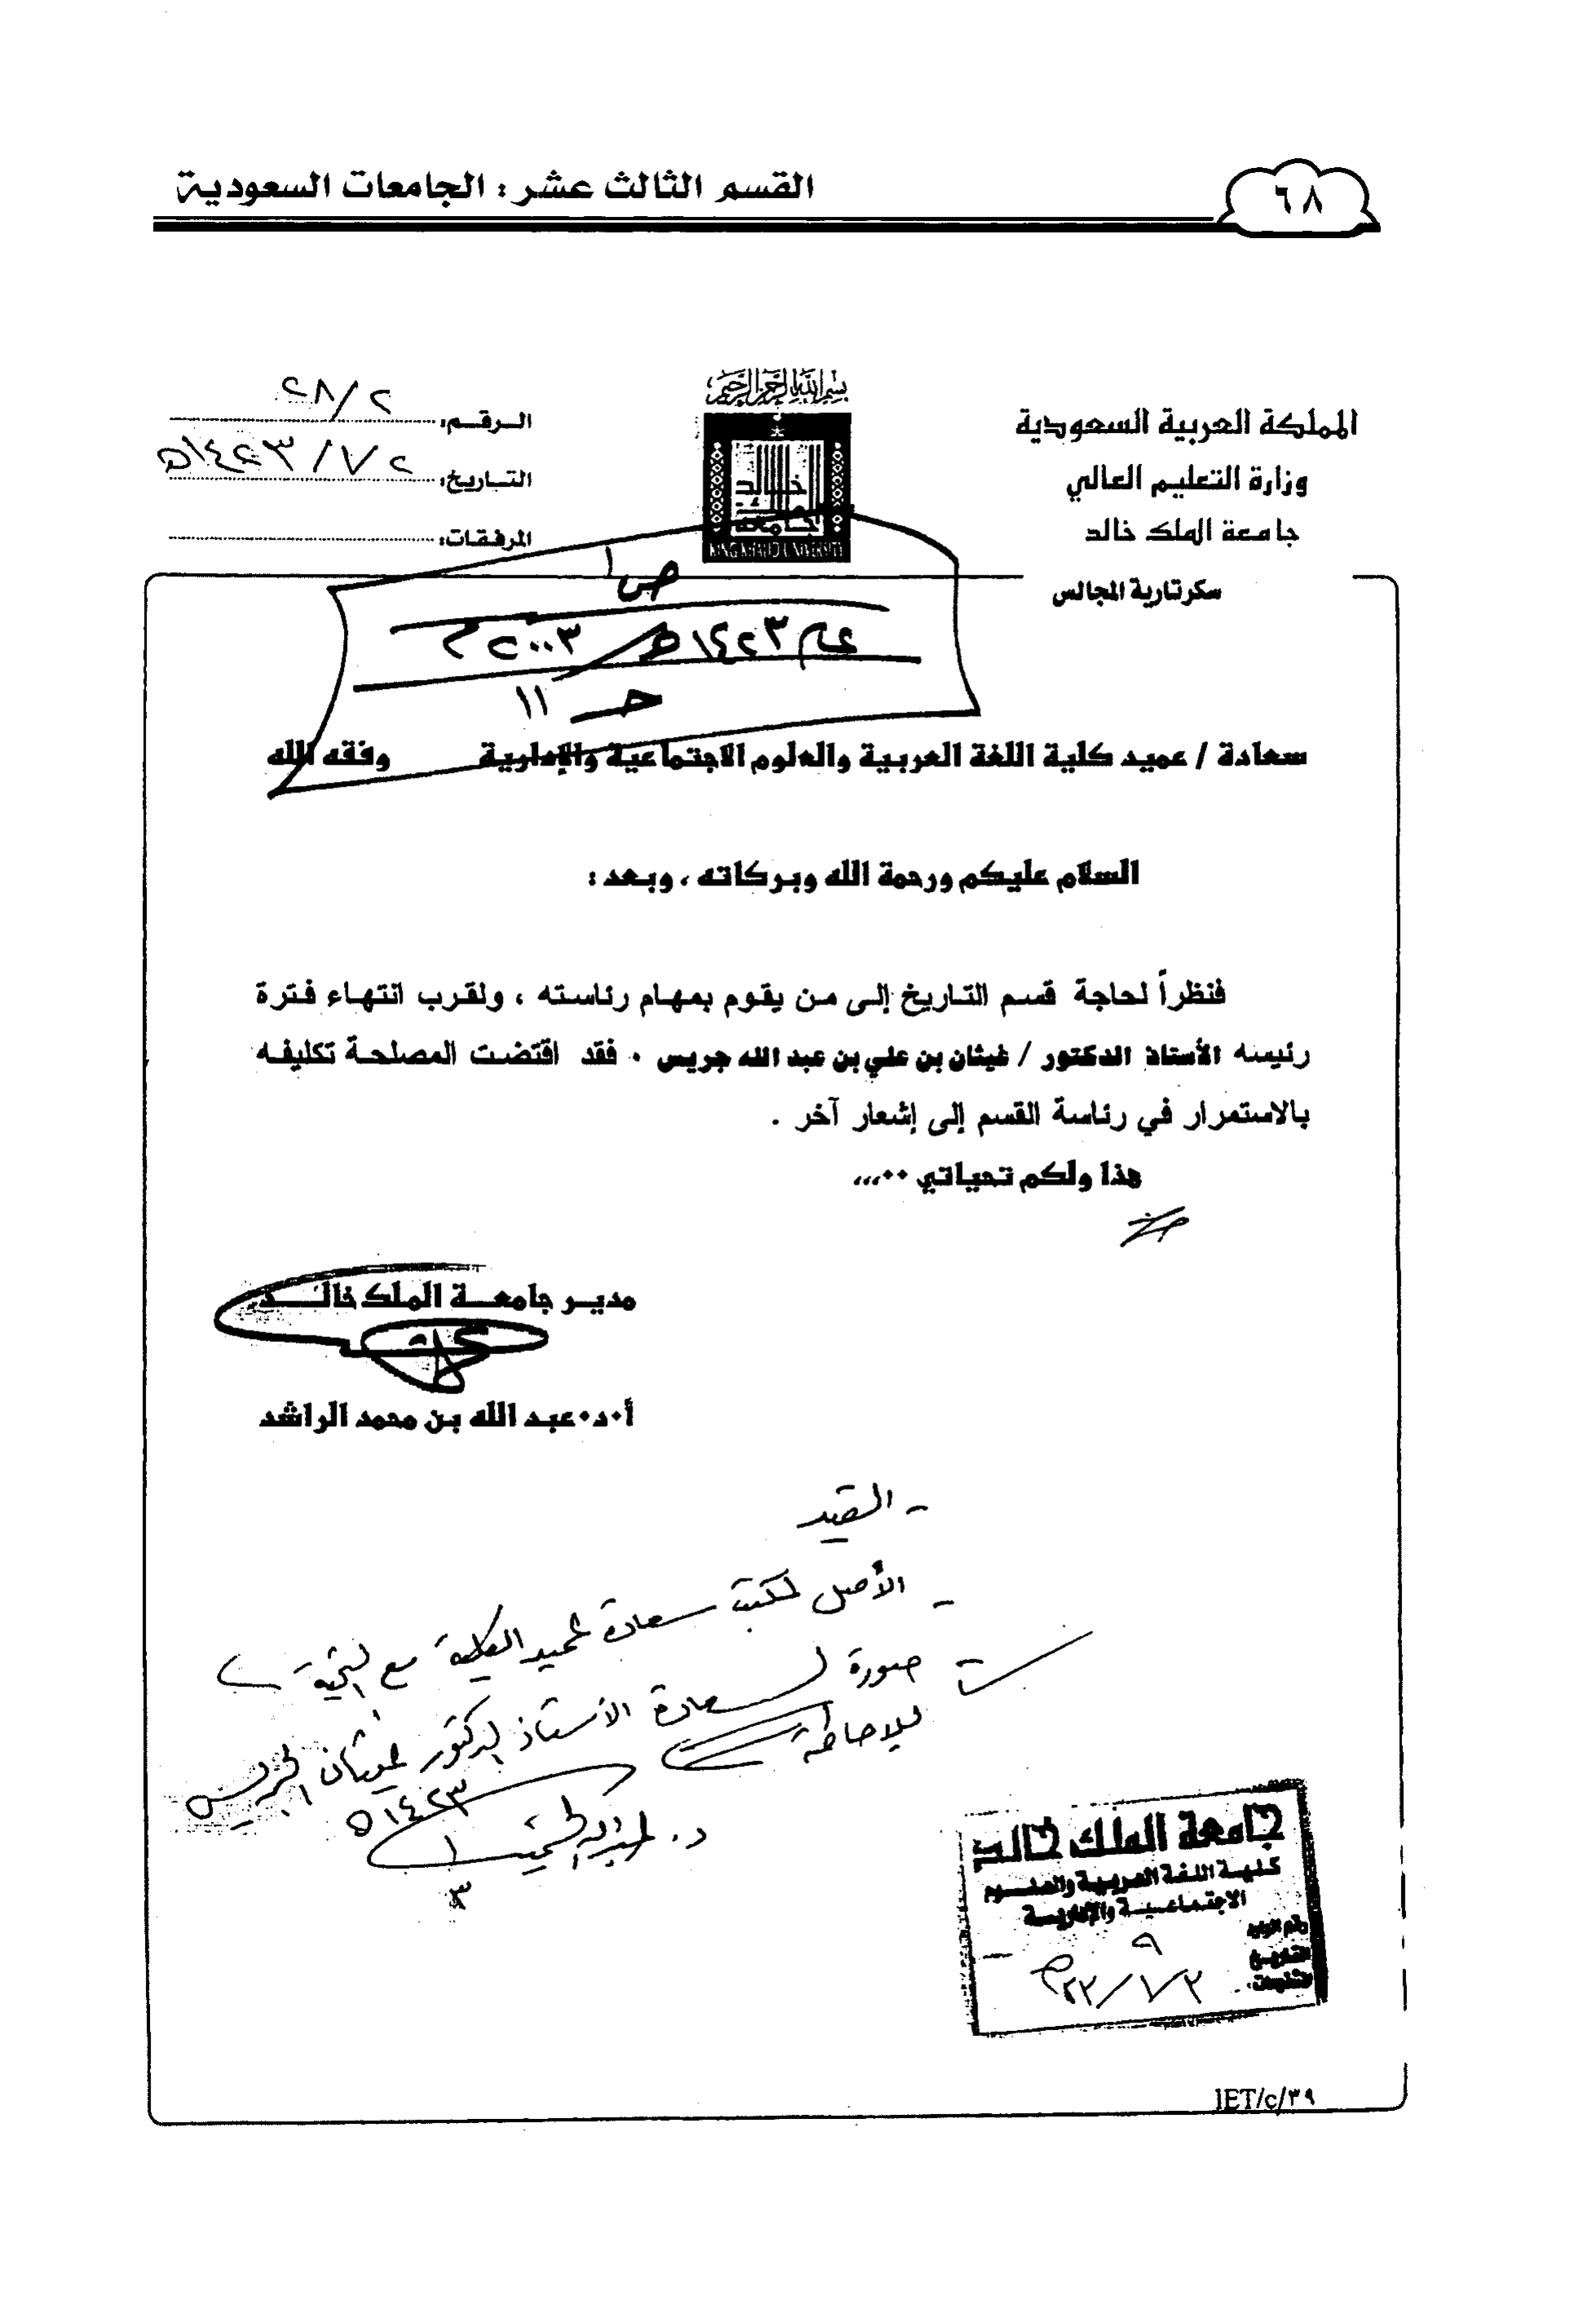 القسم الثالث عشر : الجامعات السعودية
٦٨
بسم الله الرحمن الرحيم
المملكة العربية السعودية
وزارة التعليم العالي
جامعة الملك خالد
سكرتارية المجالس
خالد
جامعة
KING KHALID UNIVERSITY
الرقم: ٢٨/٢
التاريخ: ١٤٢٣/٧٢هـ
المرفقات:
ص
عام ١٤٢٣هـ / ٢٠٠٣م
حـ ١١
سعادة / عميد كلية اللغة العربية والعلوم الاجتماعية والإدارية وفقه الله
السلام عليكم ورحمة الله وبركاته ، وبعد :
فنظراً لحاجة قسم التاريخ إلى من يقوم بمهام رئاسته ، ولقرب انتهاء فترة
رئيسه الأستاذ الدكتور / غيثان بن علي بن عبد الله جريس ٠ فقد اقتضت المصلحة تكليفه
بالاستمرار في رئاسة القسم إلى إشعار آخر .
هذا ولكم تحياتي ٠٠،،،
مدير جامعة الملك خالد
أ٠د٠عبد الله بن محمد الراشد
- القيد
- الأصل لمكتب سعادة عميد الكلية مع التحية
صورة لسعادة الأستاذ الدكتور غيثان الجريس
للإحاطة
١٤٢٣هـ
١
٣
جامعة الملك خالد
كلية اللغة العربية والعلوم
الاجتماعية والإدارية
رقم الوارد ٩
التاريخ ٢٣/١/٣هـ
المشفوعات
IET/c/٣٩